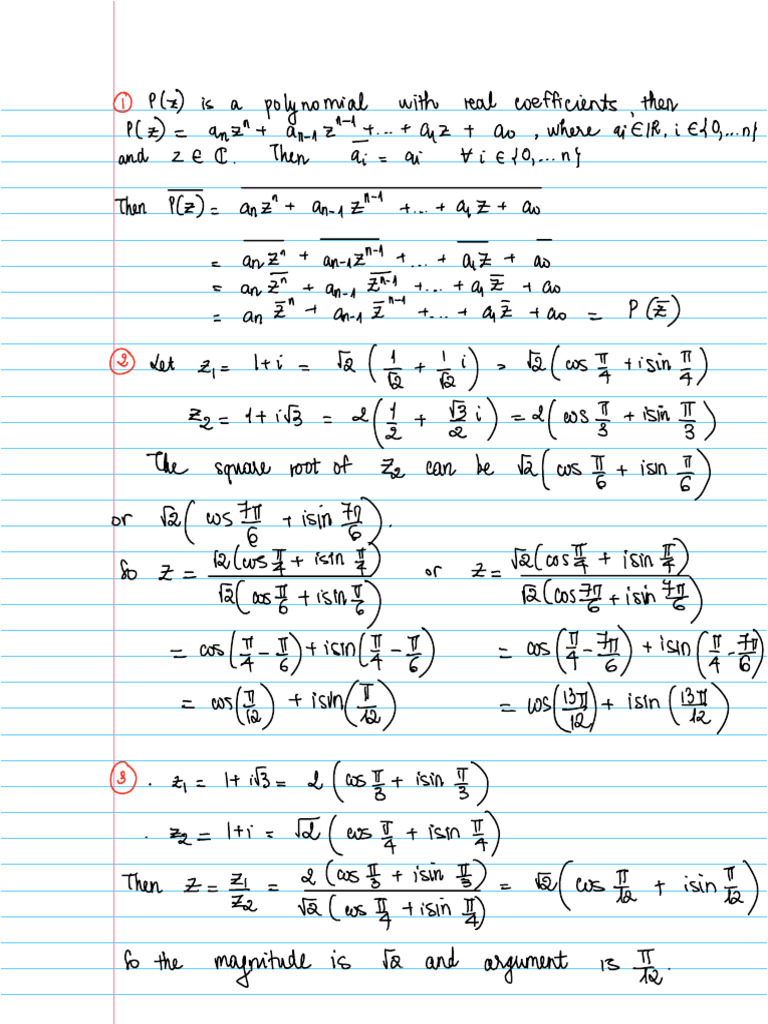 ① P(z) is a polynomial with real coefficients, then
P(z) = aₙzⁿ + aₙ₋₁zⁿ⁻¹ + ... + a₁z + a₀, where aᵢ ∈ ℝ, i ∈ {0,...n}
and z ∈ ℂ. Then \overline{aᵢ} = aᵢ ∀ i ∈ {0,...n}
Then \overline{P(z)} = \overline{aₙzⁿ + aₙ₋₁zⁿ⁻¹ + ... + a₁z + a₀}
= \overline{aₙzⁿ} + \overline{aₙ₋₁zⁿ⁻¹} + ... + \overline{a₁z} + \overline{a₀}
= aₙ\overline{zⁿ} + aₙ₋₁\overline{zⁿ⁻¹} + ... + a₁\overline{z} + a₀
= aₙ\overline{z}ⁿ + aₙ₋₁\overline{z}ⁿ⁻¹ + ... + a₁\overline{z} + a₀ = P(\overline{z})
② Let z₁ = 1+i = √2 (1/√2 + 1/√2 i) = √2 (cos π/4 + isin π/4)
z₂ = 1+i√3 = 2 (1/2 + √3/2 i) = 2 (cos π/3 + isin π/3)
The square root of z₂ can be √2 (cos π/6 + isin π/6)
or √2 (cos 7π/6 + isin 7π/6).
So z = √2 (cos π/4 + isin π/4) / √2 (cos π/6 + isin π/6) or z = √2 (cos π/4 + isin π/4) / √2 (cos 7π/6 + isin 7π/6)
= cos(π/4 - π/6) + isin(π/4 - π/6) = cos(π/4 - 7π/6) + isin(π/4 - 7π/6)
= cos(π/12) + isin(π/12) = cos(13π/12) + isin(13π/12)
③ . z₁ = 1+i√3 = 2 (cos π/3 + isin π/3)
. z₂ = 1+i = √2 (cos π/4 + isin π/4)
Then z = z₁/z₂ = 2 (cos π/3 + isin π/3) / √2 (cos π/4 + isin π/4) = √2 (cos π/12 + isin π/12)
So the magnitude is √2 and argument is π/12.